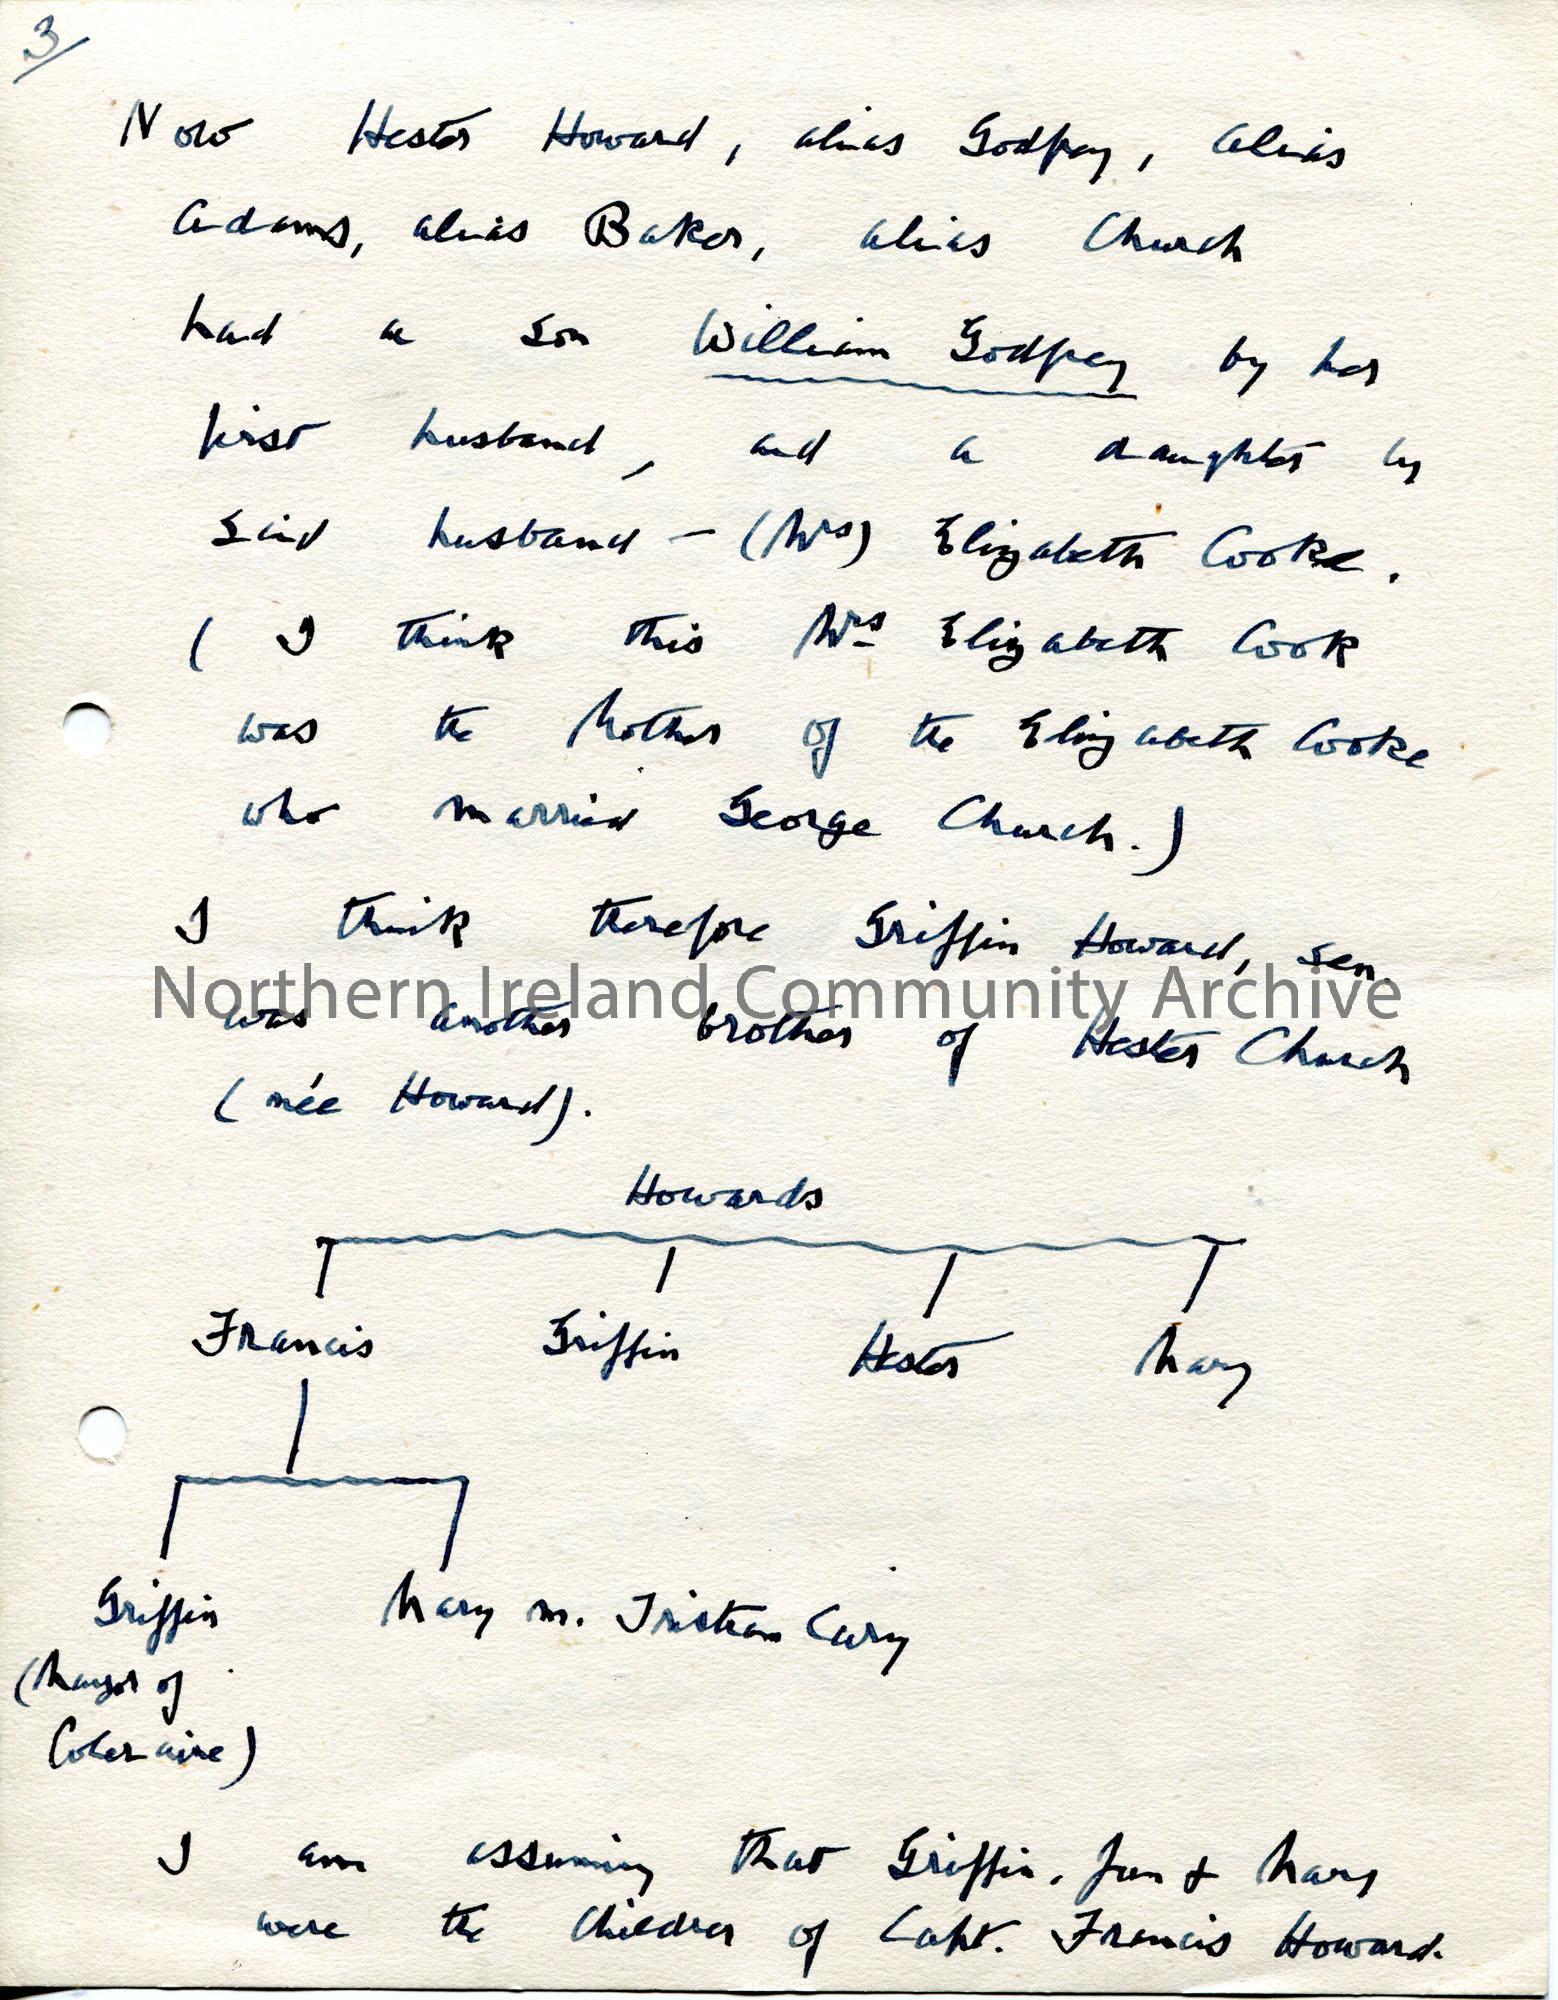 3/
Now Hester Howard, alias Godfrey, alias
Adams, alias Baker, alias Church
had a son William Godfrey by her
first husband, and a daughter by
said husband – (Mrs) Elizabeth Cooke.
( I think this Mrs Elizabeth Cook
was the Mother of the Elizabeth Cooke
who married George Church.)
I think therefore Griffin Howard, sen.
Northern Ireland Community Archive
was another brother of Hester Church
(née Howard).
Howards
Francis Griffin Hester Mary
Griffin Mary m. Tristram Cary
(Mayor of
Coleraine)
I am assuming that Griffin, Jun & Mary
were the children of Capt. Francis Howard.